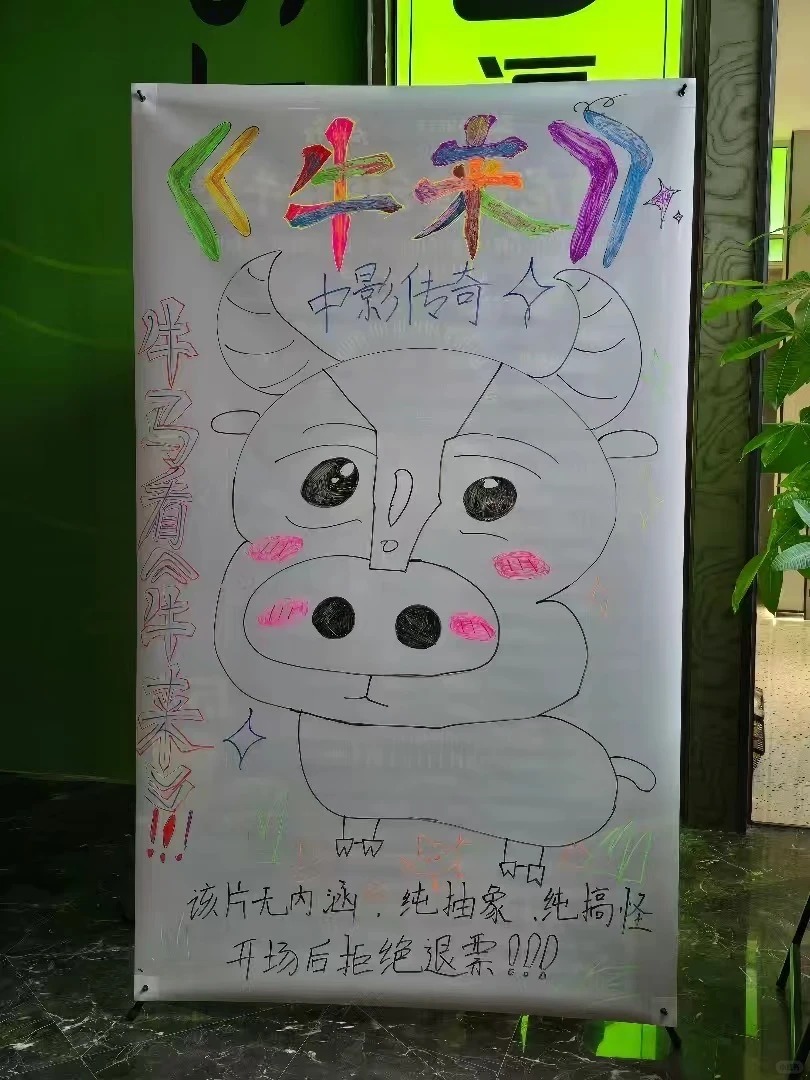 《牛来》
中影传奇
牛马看《牛来》!!!
该片无内涵.纯抽象.纯搞怪
开场后拒绝退票!!!